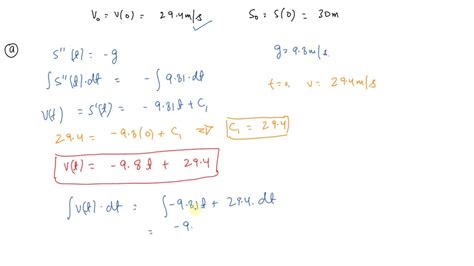 V₀ = V(0) = 29.4 m/s ✓ S₀ = S(0) = 30m
(a) S''(t) = -g g = 9.8 m/s,
∫ S''(t)·dt = -∫ 9.81·dt t = 0, v = 29.4 m/s
V(t) = S'(t) = -9.81t + C₁
29.4 = -9.8(0) + C₁ ⇒ C₁ = 29.4
V(t) = -9.8t + 29.4
∫ V(t)·dt = ∫ -9.81t + 29.4. dt
= -9.